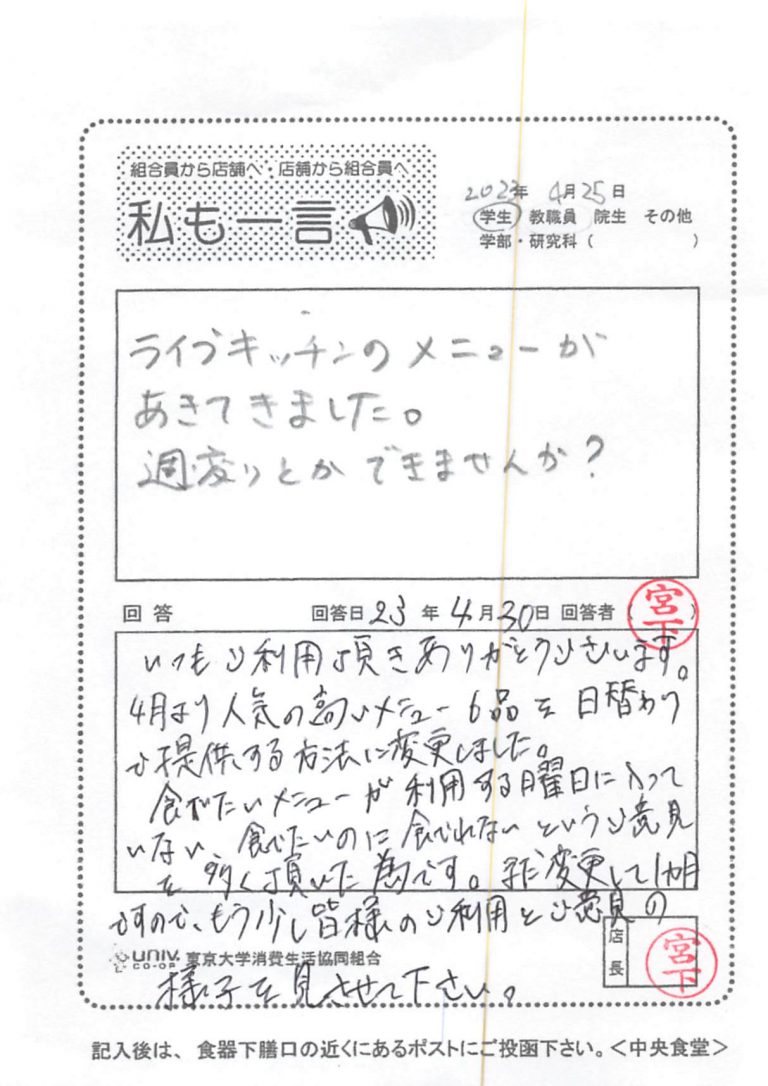 組合員から店舗へ・店舗から組合員へ
私も一言
2023年 4月25日
学生 教職員 院生 その他
学部・研究科（ ）
ライブキッチンのメニューが
あきてきました。
週変りとかできませんか?
回答 回答日23年4月30日 回答者（宮下）
いつもご利用頂きありがとうございます。
4月より人気の高いメニュー6品を日替わり
で提供する方法に変更しました。
食べたいメニューが利用する曜日に入って
いない、食べたいのに食べれないというご意見
を多く頂いた為です。まだ変更して1ヵ月
ですので、もう少し皆様のご利用とご意見の
様子を見させて下さい。
UNIV. CO-OP 東京大学消費生活協同組合
店長 宮下
記入後は、食器下膳口の近くにあるポストにご投函下さい。＜中央食堂＞